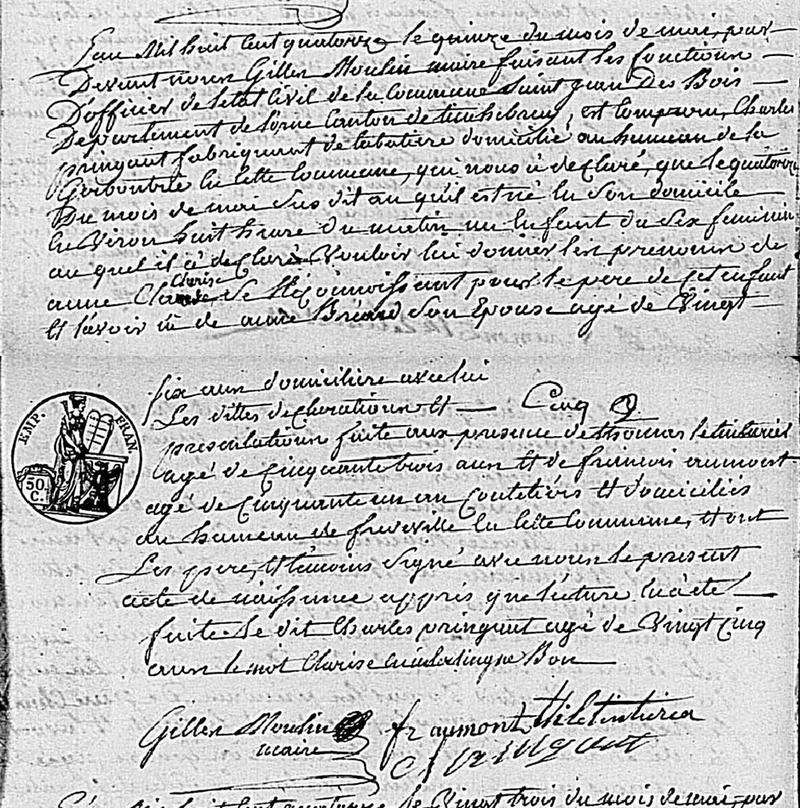 L'an Mil huit cent quatorze le quinze du mois de mai, par
Devant nous Gilles Moulin maire faisant les fonctions
D'officier de l'etat Civil de la Commune Saint jean Des Bois
Departement de l'orne Canton de tinchebray, est Comparu, Charles
pringaut fabriquant de tabatiere domicilié au hameau de la
en cette Commune, qui nous à declaré, que le quatorze
Du mois de mai sus dit an qu'il est né en Son domicile
en Viron huit heure du matin un Enfant du Sex feminin
au quel il à declaré Vouloir lui donner les prenoms de
Clarise
anne Se Reconnoissant pour le pere de Cet enfant
Et l'avoir u de anne Briard Son Epouse agé de Vingt
six ans domiciliére avec lui
Les dittes declarations Et — Cinq
presentations faite aux presence de thomas letinturier
agé de Cinquante trois ans Et de frinçois aumont
agé de Cinquante un an Couteliérs Et domiciliés
au hameau de freville en Cette Commune, Et ont
Les pere, Et témoins Signé avec nous le present
acte de naissance apprés que lécture en à été
faite Le dit Charles pringaut agé de Vingt Cinq
ans le mot Clarise en interlingne Bon
EMP. FRAN.
50 C.
Gilles Moulin
maire
fr aumont th letinturier